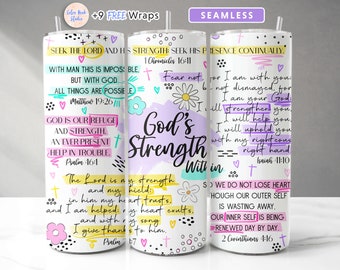 +9 FREE Wraps
SEAMLESS
SEEK THE LORD AND HIS STRENGTH SEEK HIS PRESENCE CONTINUALLY
1 Chronicles 16:11
WITH MAN THIS IS IMPOSSIBLE,
BUT WITH GOD
ALL THINGS ARE POSSIBLE
Matthew 19:26
GOD IS OUR REFUGE
AND STRENGTH,
AN EVER PRESENT
HELP IN TROUBLE
Psalm 46:1
The Lord is my strength
and my shield;
in him my heart trusts,
and I am helped;
my heart exults,
and with my song
I give thanks to him
Psalm
Fear not
God's
Strength
Within
for I am with you
be not dismayed
for I am your God
I will strengthen you
I will help you
I will uphold you
with my
right hand
Isaiah 41:10
SO WE DO NOT LOSE HEART
THOUGH OUR OUTER SELF
IS WASTING AWAY,
OUR INNER SELF IS BEING
RENEWED DAY BY DAY.
2 Corinthians 4:16